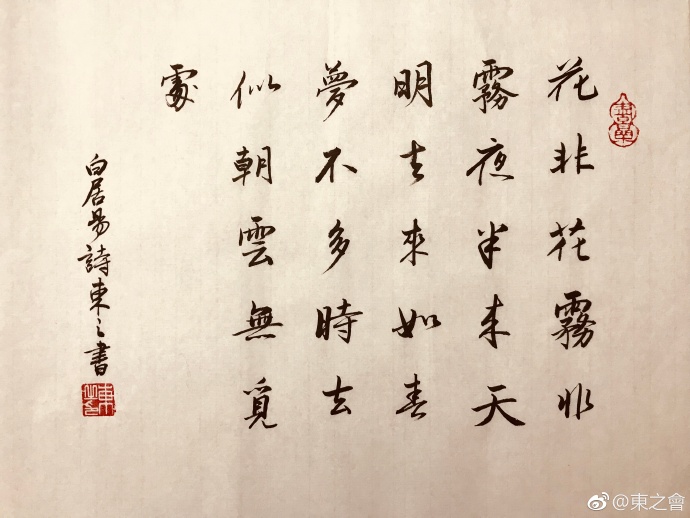 花非花霧非
霧夜半来天
明去來如春
夢不多時去
似朝雲無覓
處
白居易詩東之書
東之會
@東之會